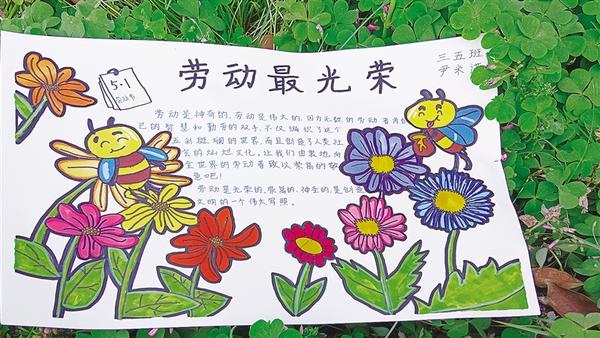 劳动最光荣
三五班
尹米
5·1
劳动节
劳动是神奇的，劳动是伟大的。因为无数的劳动者用自
己的智慧和勤劳的双手，不仅编织了这个
五彩斑斓的世界，而且创造了人类社
会的灿烂文化。让我们由衷地向
全世界的劳动者致以崇高的敬
意吧！
劳动是光荣的、崇高的、神圣的，是创造
文明的一个伟大写照。